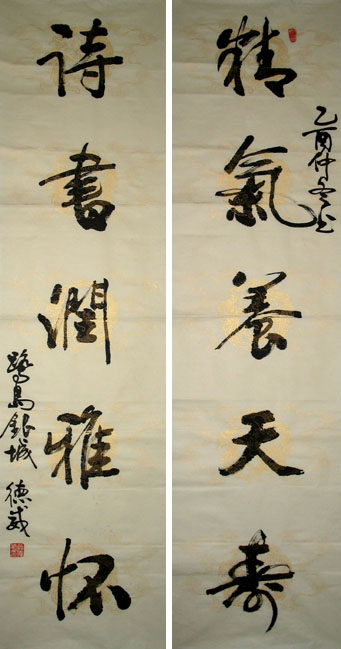 精氣養天寿
乙酉仲冬
诗書潤雅怀
鹭島銀城 德威